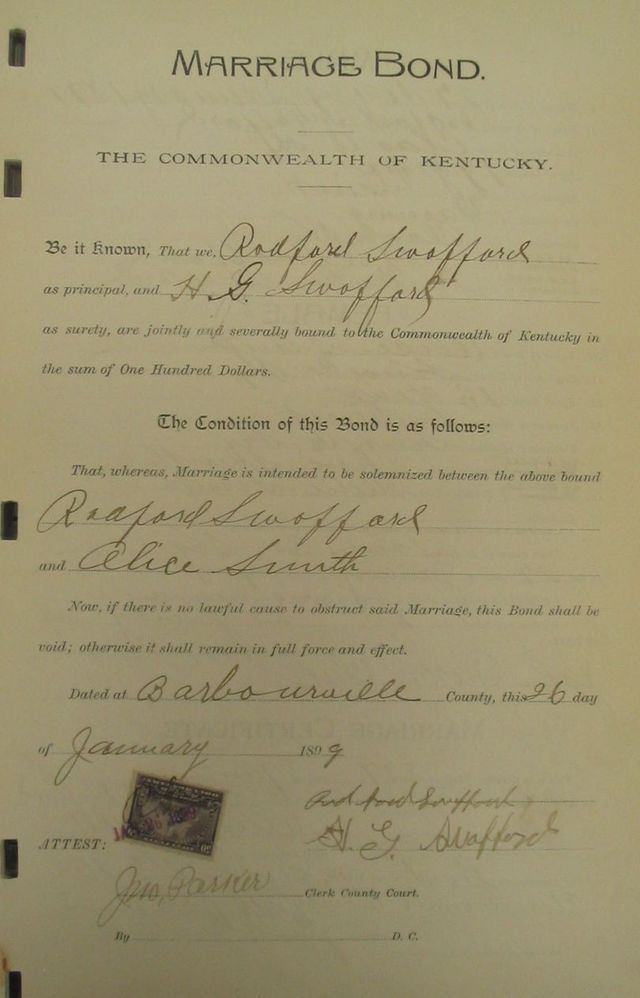 MARRIAGE BOND.
THE COMMONWEALTH OF KENTUCKY.
Be it Known, That we, Radford Swofford
as principal, and H. G. Swofford
as surety, are jointly and severally bound to the Commonwealth of Kentucky in
the sum of One Hundred Dollars.
The Condition of this Bond is as follows:
That, whereas, Marriage is intended to be solemnized between the above bound
Radford Swofford
and Alice Smith
Now, if there is no lawful cause to obstruct said Marriage, this Bond shall be
void; otherwise it shall remain in full force and effect.
Dated at Barbourville County, this 26 day
of January 1899
Radford Swofford
H. G. Swafford
ATTEST:
Jno, Parker Clerk County Court.
By D. C.